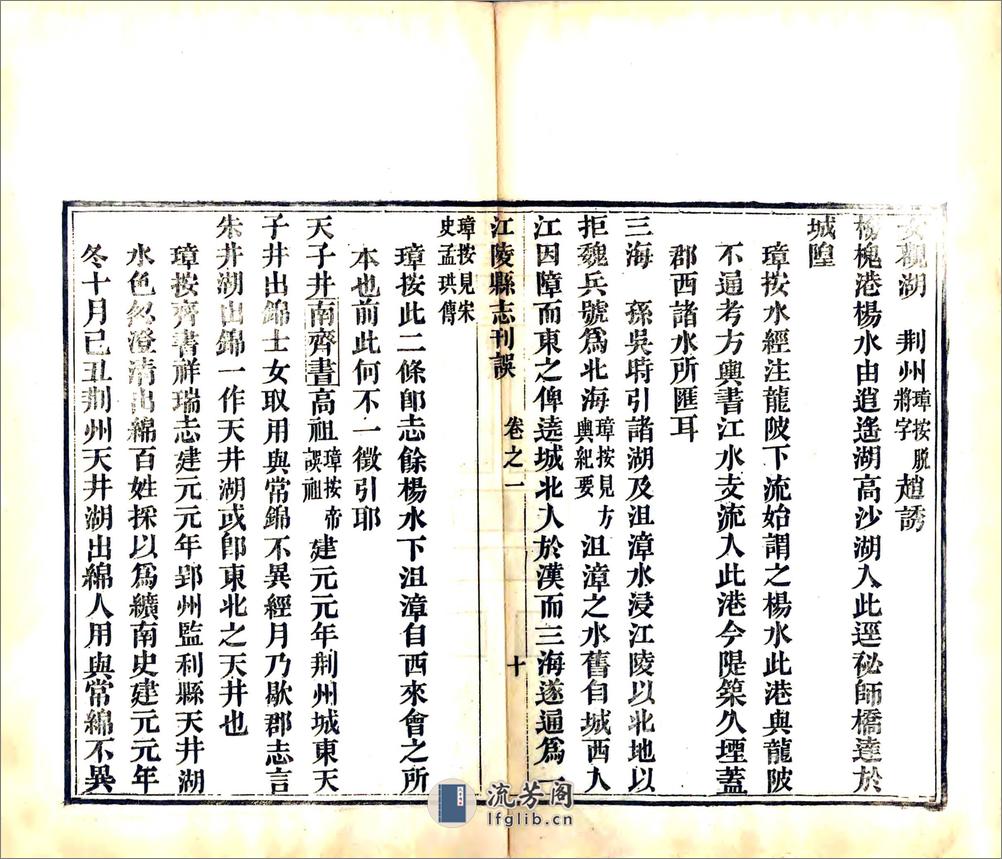 女觀湖　荊州璋按脫將字趙誘
楊槐港楊水由逍遙湖高沙湖入此逕祕師橋達於
城隍
璋按水經注龍陂下流始謂之楊水此港與龍陂
不通考方輿書江水支流入此港今隄築久堙蓋
郡西諸水所匯耳
三海　孫吳時引諸湖及沮漳水浸江陵以北地以
拒魏兵號爲北海璋按見方輿紀要沮漳之水舊自城西入
江因障而東之俾遶城北入於漢而三海遂通爲一
江陵縣志刊誤　卷之一　十
璋按見宋史孟珙傳
璋按此二條卽志餘楊水下沮漳自西來會之所
本也前此何不一徵引耶
天子井南齊書高祖璋按帝誤祖建元元年荊州城東天
子井出錦士女取用與常錦不異經月乃歇郡志言
朱井湖出錦一作天井湖或卽東北之天井也
璋按齊書祥瑞志建元元年郢州監利縣天井湖
水色忽澄清出綿百姓採以爲纊南史建元元年
冬十月己丑荊州天井湖出綿人用與常綿不異
流芳閣
lfglib.cn